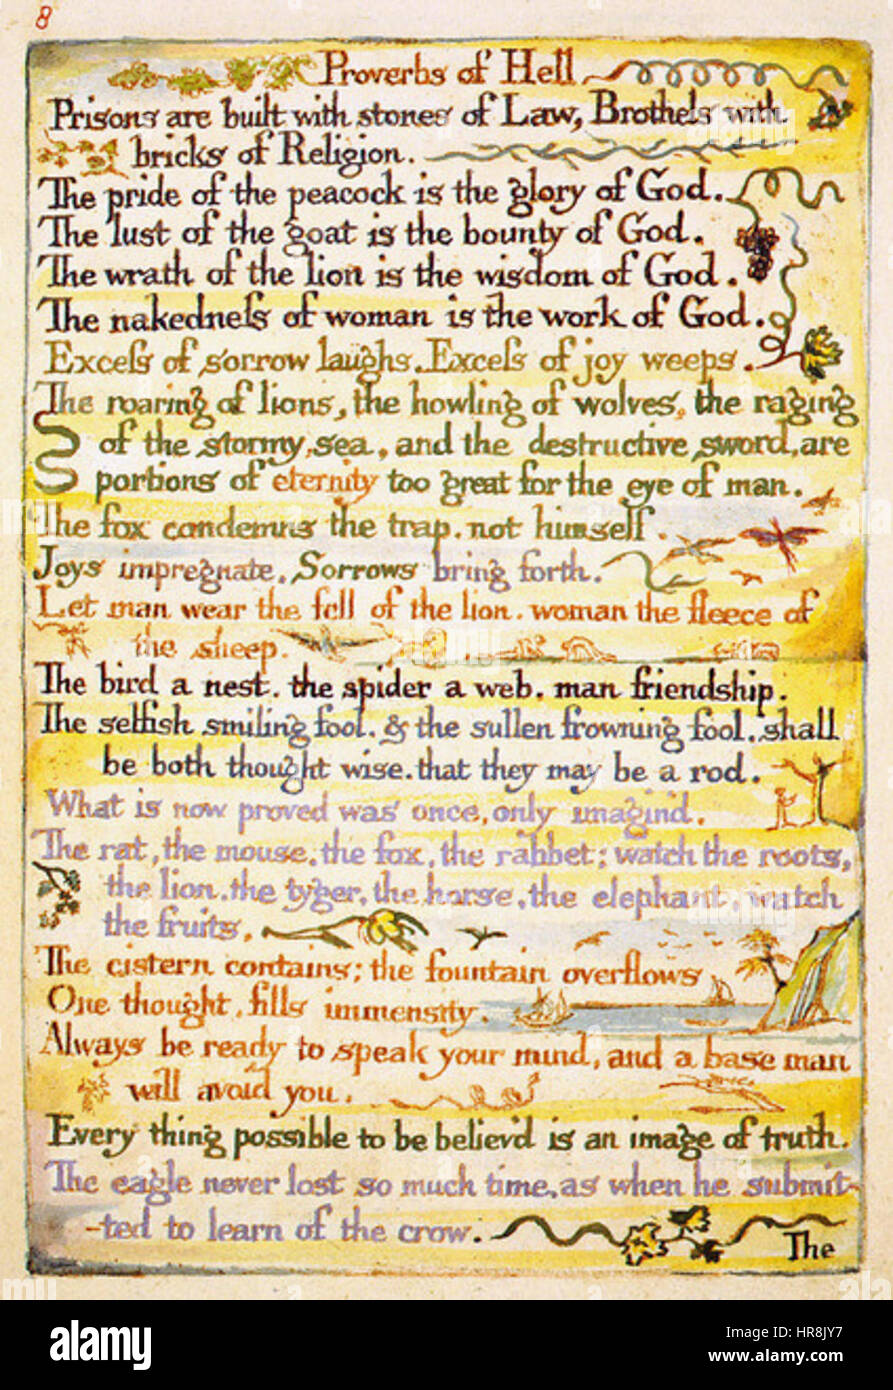 8
Proverbs of Hell
Prisons are built with stones of Law, Brothels with
bricks of Religion.
The pride of the peacock is the glory of God.
The lust of the goat is the bounty of God.
The wrath of the lion is the wisdom of God.
The nakedneſs of woman is the work of God.
Exceſs of sorrow laughs. Exceſs of joy weeps.
The roaring of lions, the howling of wolves, the raging
of the stormy sea, and the destructive sword, are
portions of eternity too great for the eye of man.
The fox condemns the trap, not himself.
Joys impregnate. Sorrows bring forth.
Let man wear the fell of the lion. woman the fleece of
the sheep.
The bird a nest. the spider a web. man friendship.
The selfish smiling fool. & the sullen frowning fool. shall
be both thought wise. that they may be a rod.
What is now proved was once, only imagin'd.
The rat, the mouse, the fox, the rabbet; watch the roots,
the lion, the tyger, the horse, the elephant, watch
the fruits.
The cistern contains; the fountain overflows
One thought, fills immensity.
Always be ready to speak your mind, and a base man
will avoid you.
Every thing possible to be believ'd is an image of truth.
The eagle never lost so much time, as when he submit-
-ted to learn of the crow.
The
alamy
Image ID: HR8JY7
www.alamy.com